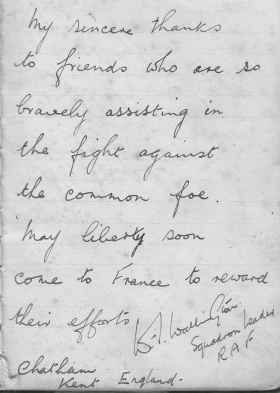 My sincere thanks
to friends who are so
bravely assisting in
the fight against
the common foe.
May liberty soon
come to France to reward
their efforts
Wallington
Squadron Leader
R A F
Chatham
Kent England.